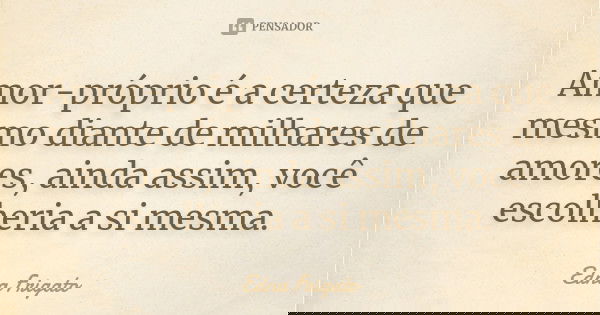 PENSADOR
Amor-próprio é a certeza que
mesmo diante de milhares de
amores, ainda assim, você
escolheria a si mesma.
Edna Frigato